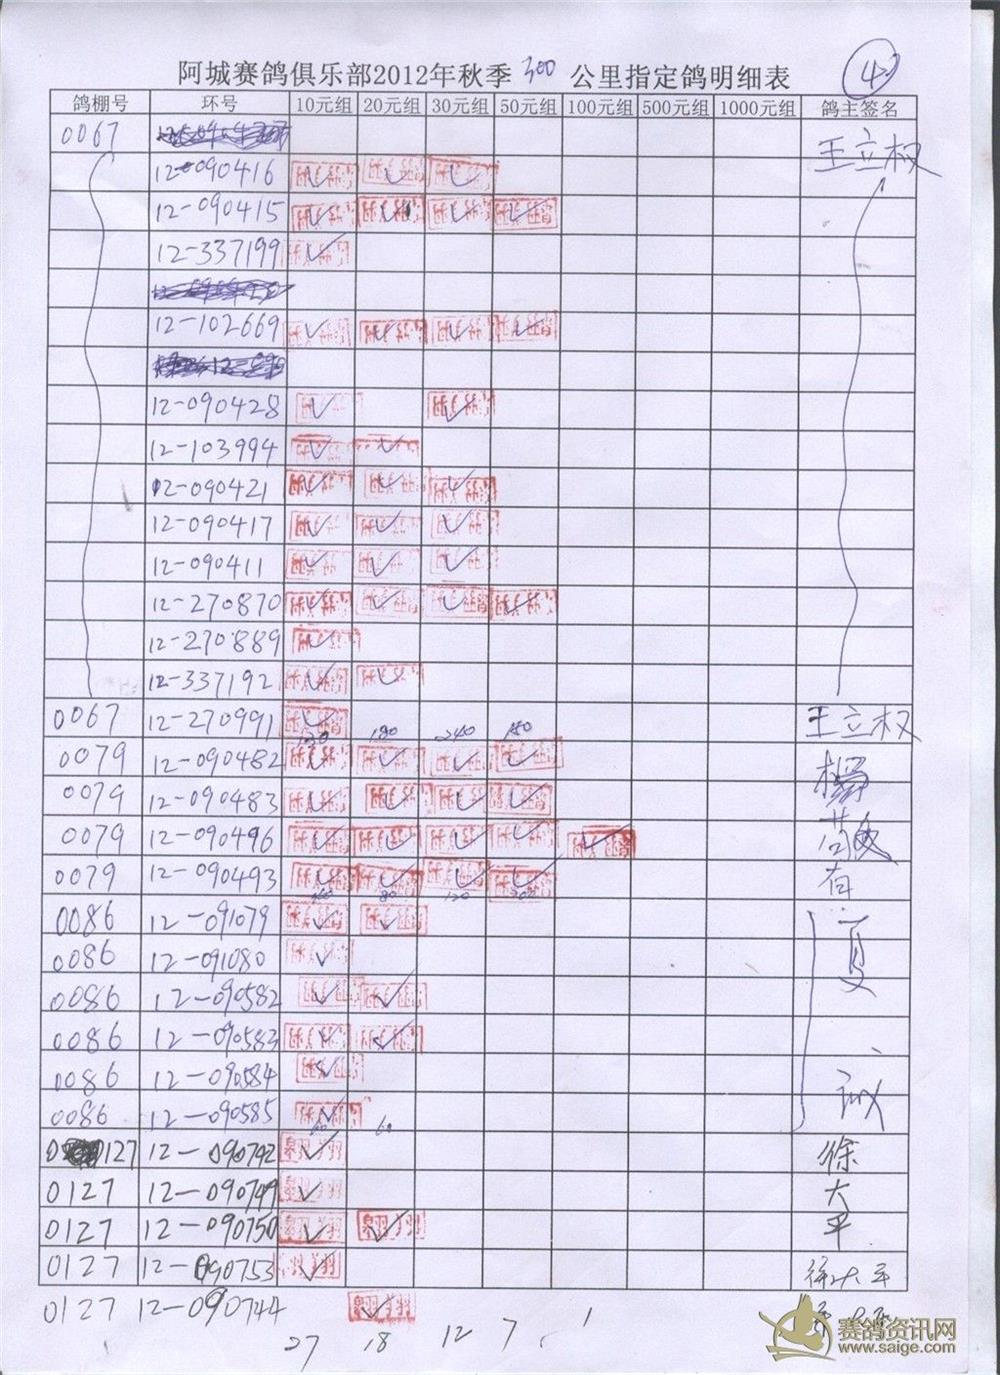 阿城赛鸽俱乐部2012年秋季 300 公里指定鸽明细表 4
鸽棚号 环号 10元组 20元组 30元组 50元组 100元组 500元组 1000元组 鸽主签名
0067 王立权
12-090416
12-090415
12-337199
12-102669
12-090428
12-103994
12-090421
12-090417
12-090411
12-270870
12-270889
12-337192
0067 12-270991 王立权
180 240
0079 12-090482 杨
0079 12-090483
0079 12-090496
0079 12-090493 有
80 120
0086 12-091079
0086 12-091080 夏
0086 12-090582
0086 12-090583
0086 12-090584
0086 12-090585 诚
60 60
0127 12-090742 徐
0127 12-090749 大
0127 12-090750 平
0127 12-090753 徐大平
0127 12-090744
27 18 12 7 1
赛鸽资讯网
www.saige.com